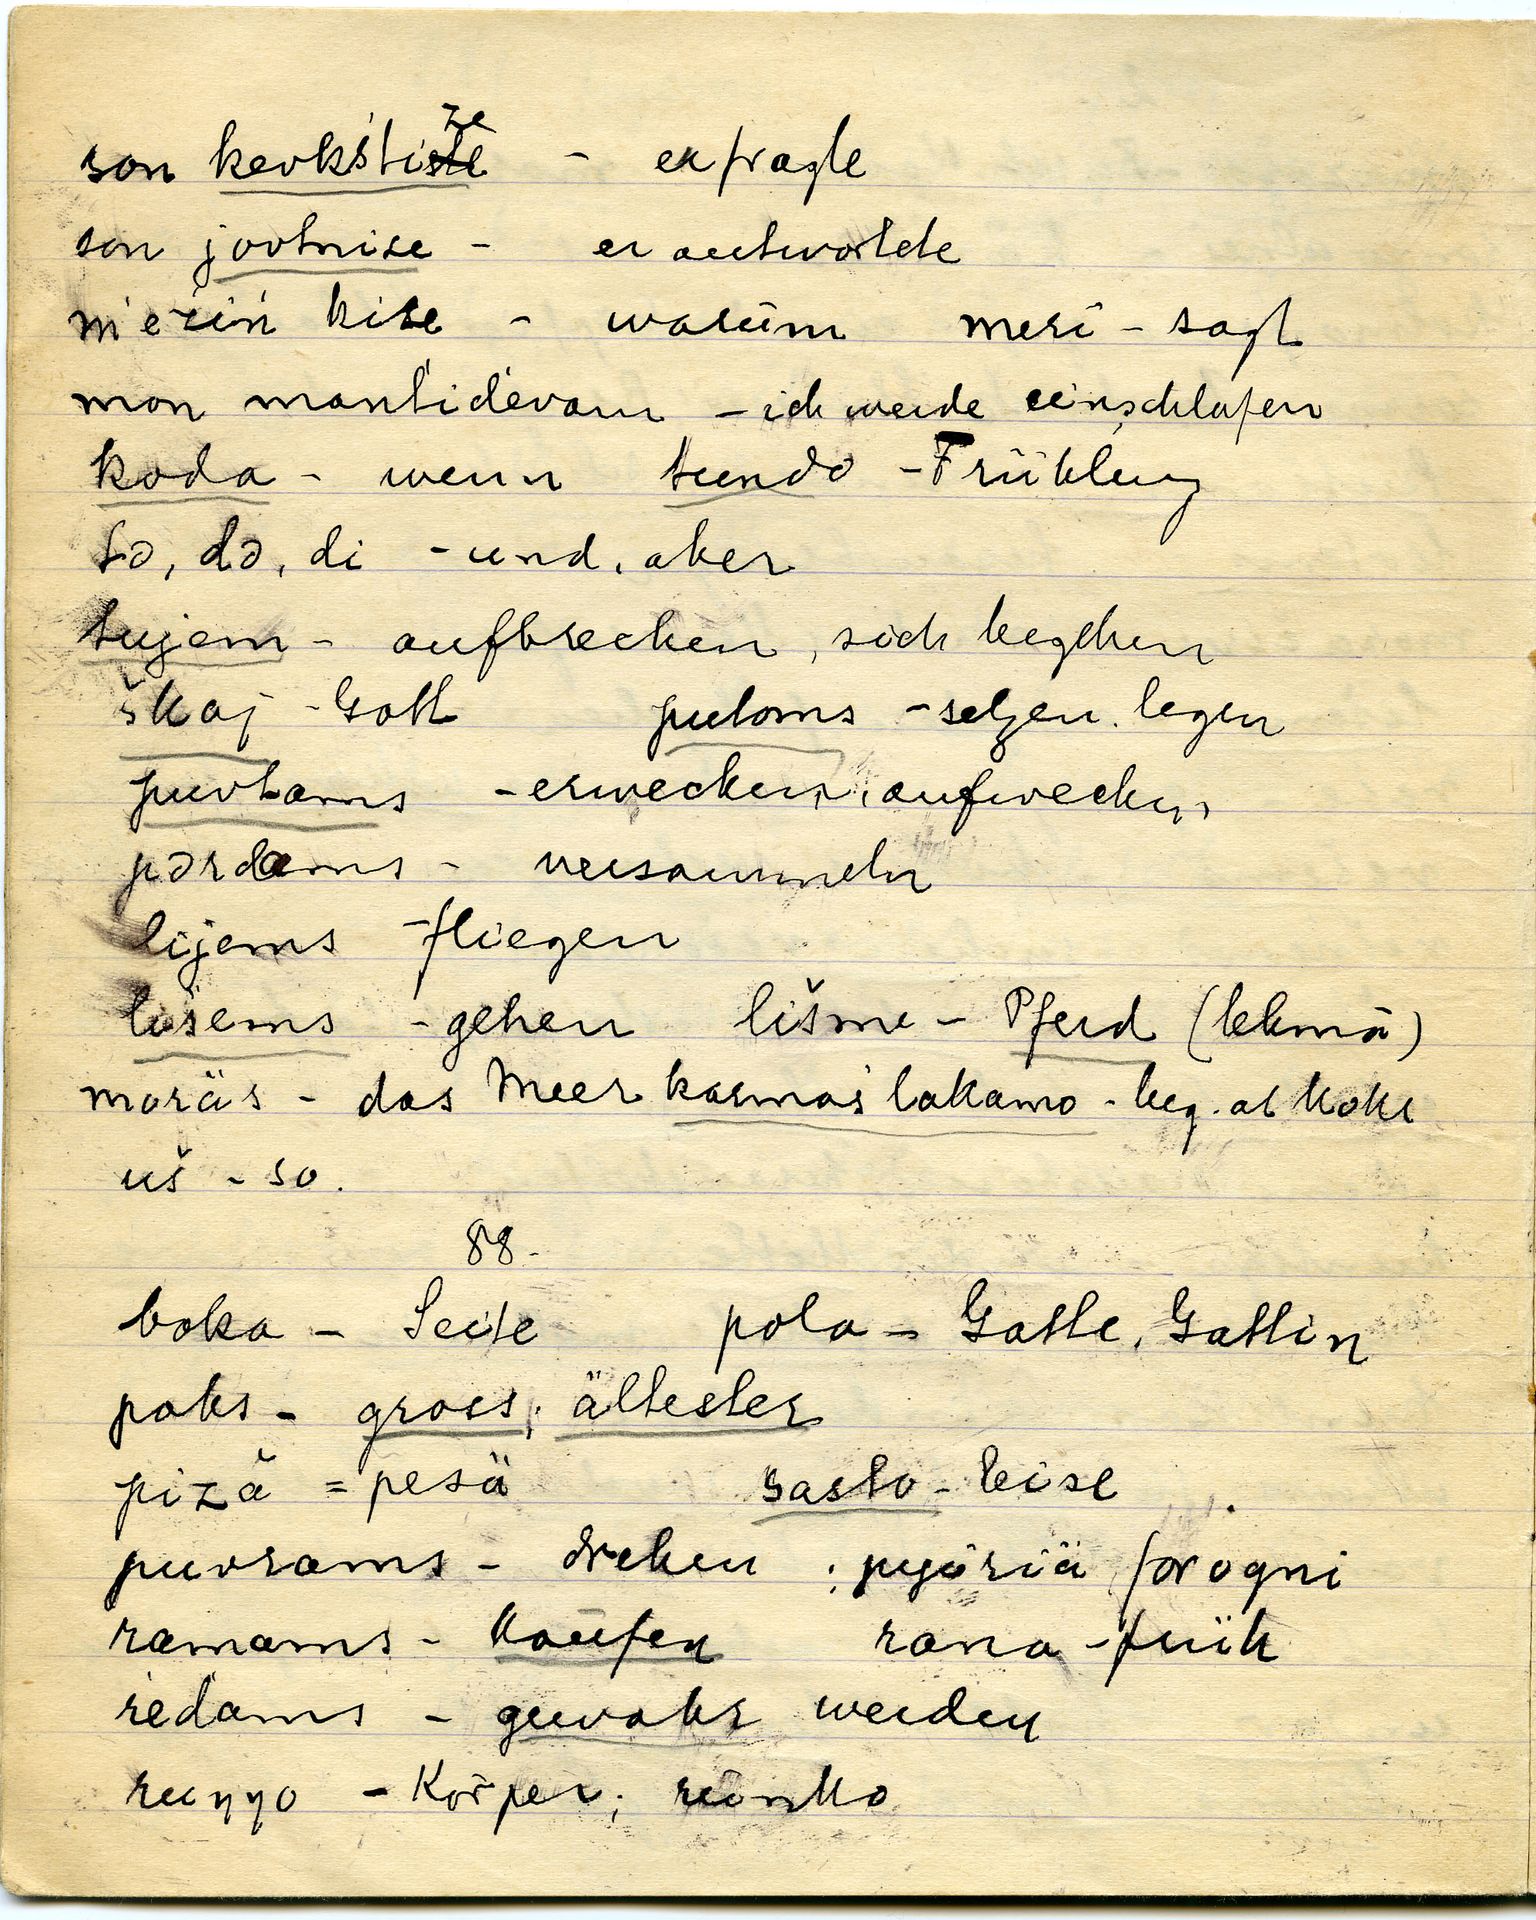 son kevkśtize - er fragte
son jovtnize - er antwortete
ḿeŕiń kise - warum meri - sagt
mon mantidevan - ich werde einschlafen
koda - wenn tundo - Frühling
tə, də, di - und, aber
tujem - aufbrechen, sich begehen
škaj - Gott putoms - setzen, legen
puvtams - erwecken, aufwecken
pərdams - versammeln
lijems - fliegen
liśems - gehen lišme - Pferd (lehmä)
moräs - das Meer kosmos lakamo - beg. at
uš - so.
88.
boka - Seite pola - Gatte, Gattin
poks - gross, ältester
pizä = pesä sasto - leise
puvrams - drehen ; pyöriä forogni
ramams - kaufen rana - früh
ŕedams - gewahr werden
ruŋgo - Körper; runko